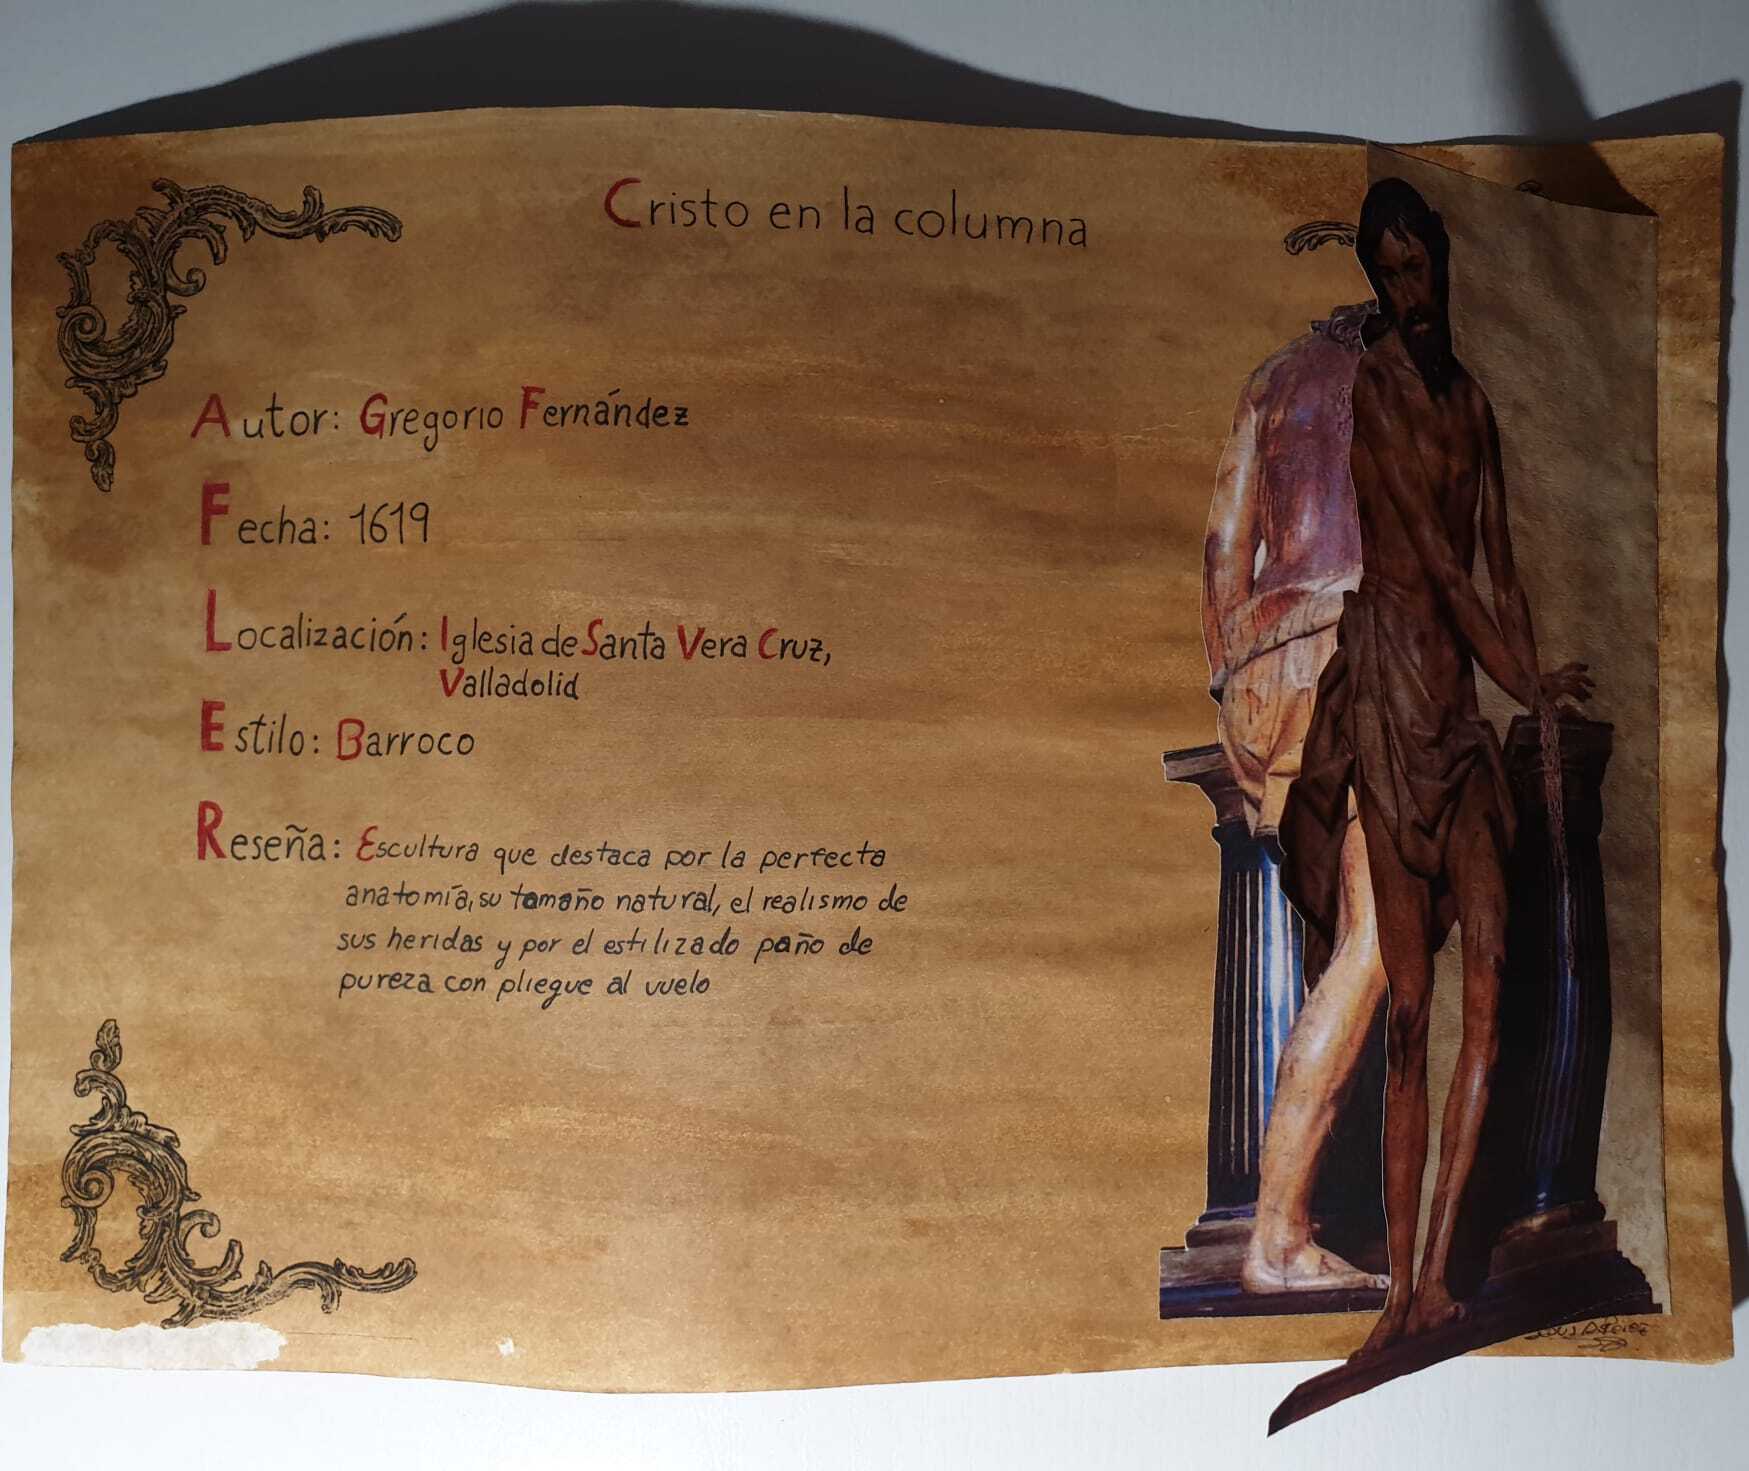 Cristo en la columna
Autor: Gregorio Fernández
Fecha: 1619
Localización: Iglesia de Santa Vera Cruz,
Valladolid
Estilo: Barroco
Reseña: Escultura que destaca por la perfecta
anatomía, su tamaño natural, el realismo de
sus heridas y por el estilizado paño de
pureza con pliegue al vuelo